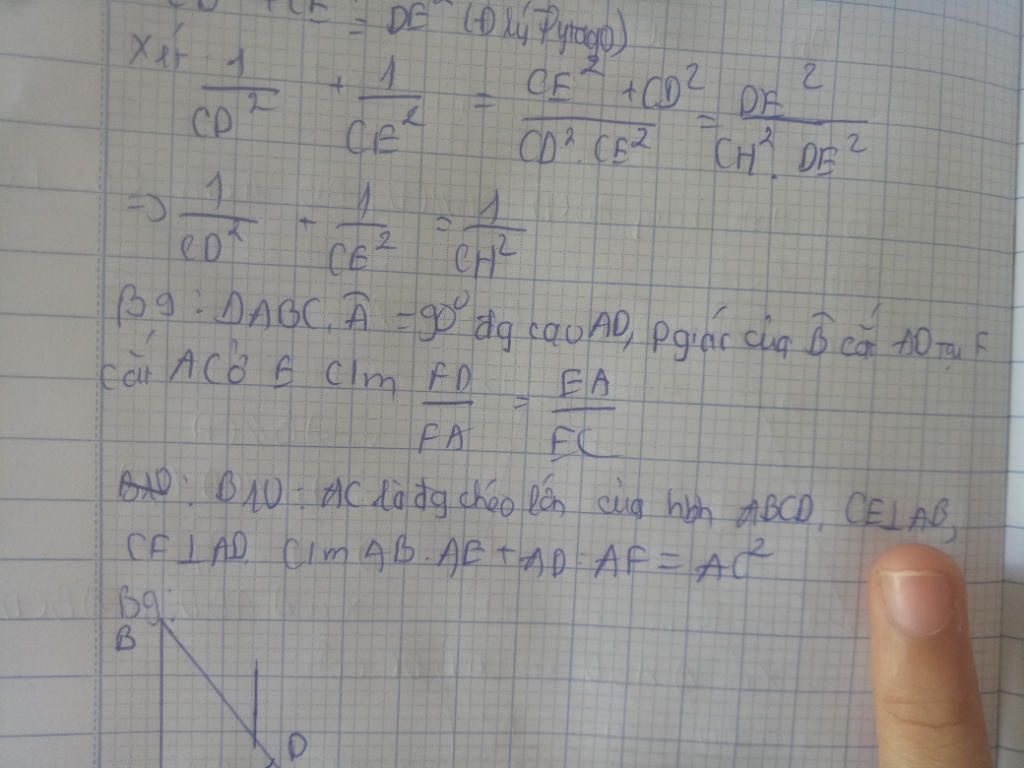 CE² = DE² (Đ lý Pytago)
Xét 1/CD² + 1/CE² = CE² + CD²/CD². CE² = DE²/CH². DE²
=> 1/CD² + 1/CE² = 1/CH²
B9: ΔABC, Â = 90° đg cao AD, p giác của B̂ cắt AD tại F
cắt AC ở E C/m FD/FA = EA/EC
B10: AC là đg chéo lớn của hbh ABCD, CE⊥AB,
CF⊥AD. C/m AB.AE + AD.AF = AC²
Bg:
B
D